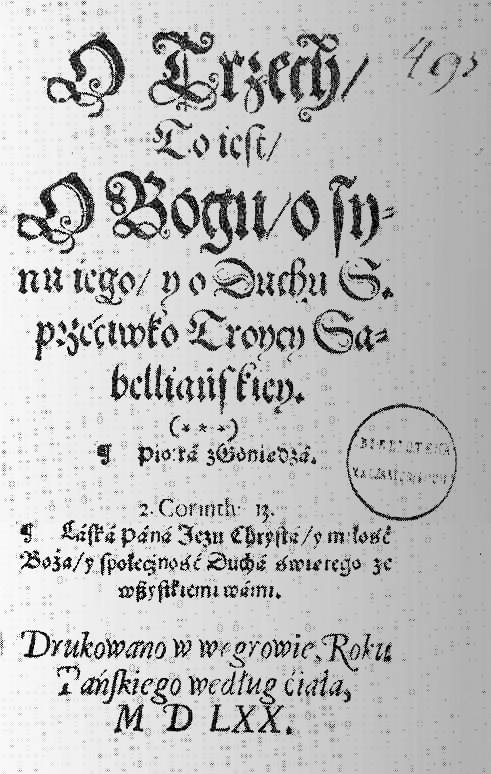 O Trzech/
To iest/
O Bogu/ o sy=
nu iego/ y o Duchu S.
przećiwko Troycy Sa=
belliańskiey.
(***)
¶ Piotrá z Goniedzá.
2. Corinth: 13.
¶ Láská páná Jezu Chrystá/ y miłość
Boża/ y społeczność Duchá świętego ze
wszystkiemi wámi.
Drukowano w węgrowie, Roku
Pańskiego według ćiáłá,
M D LXX.
493
BIBLIOTEKA